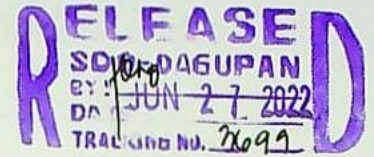 RELEASED
SDO DAGUPAN
BY:
DA JUN 27 2022
TRACKING NO. 3699